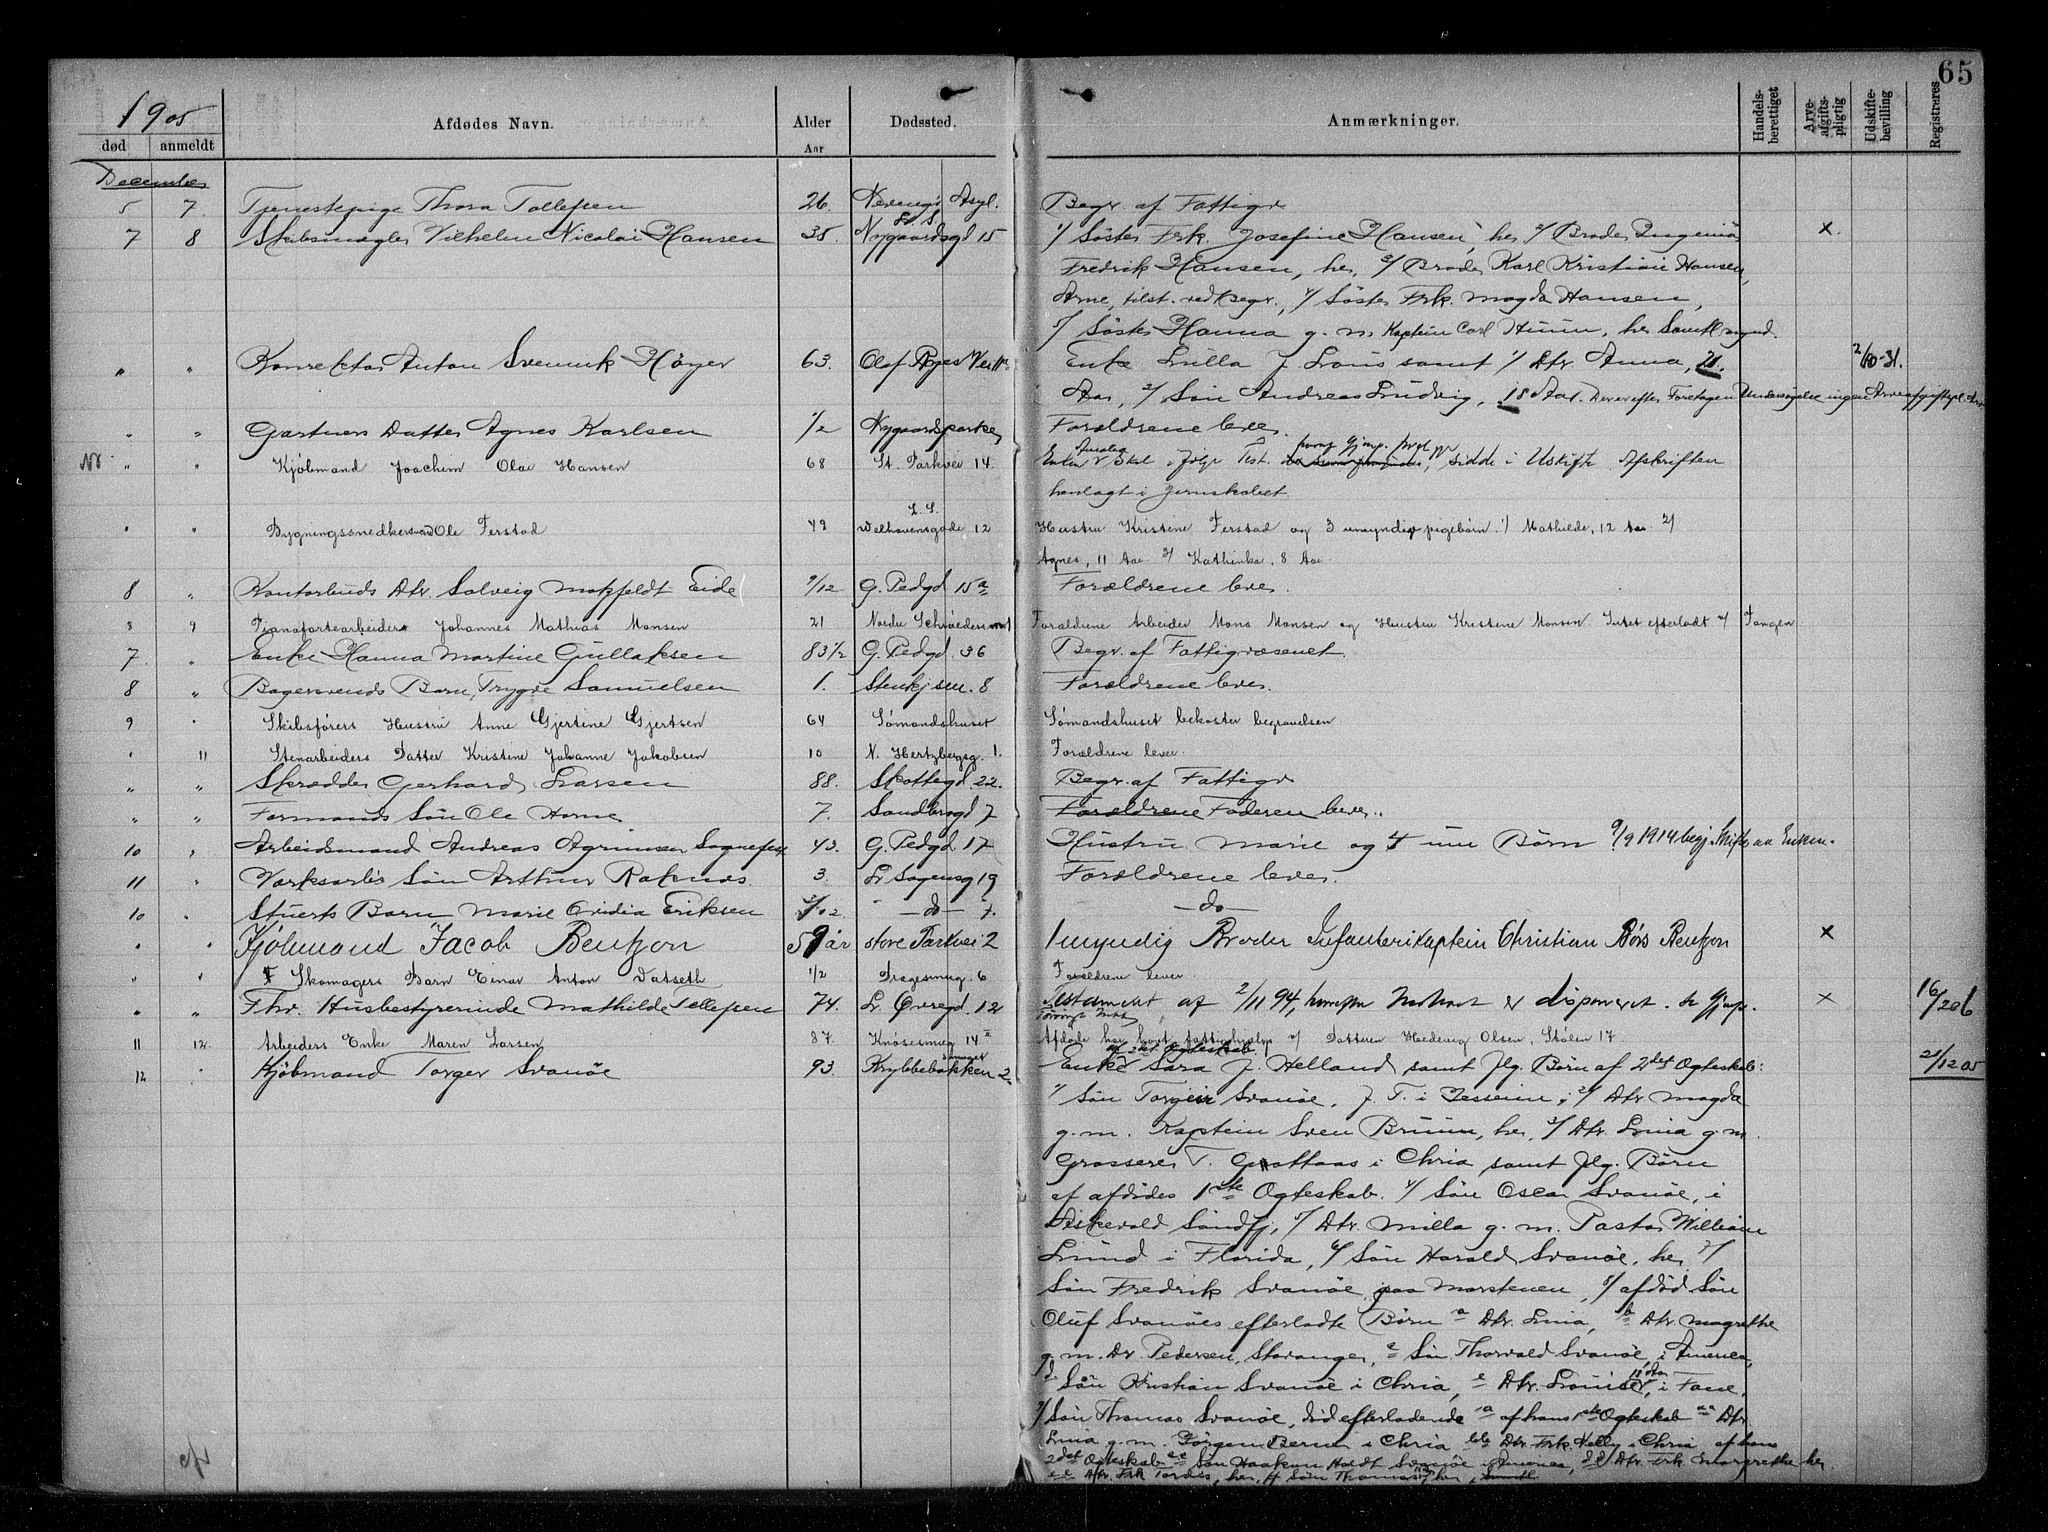 65
1905
død
anmeldt
Afdødes Navn.
Alder
Aar
Dødssted.
Anmærkninger.
Handels-
berettiget
Arve-
afgifts-
pligtig
Udskifte-
bevilling
Registreres
December
5 7. Tjenestepige Thora Tollefsen 26. Asyl. Begr. af Fattigv
7 8 Skibsmægler Vilhelm Nicolai Hansen 38. Nygaardsgd 15 1/ Søster Frk. Josefine Hansen, her 2/ Broder Ingeniør x.
Fredrik Hansen, her, 3/ Broder Karl Kristian Hansen,
Arne, tilst. ved Begr., 4/ Søster Frk. Magda Hansen,
5/ Søster Hanna g. m. Kaptein Carl her Samtl. mynd.
" " Konrektor Anton Høyer 63. Olaf Ryes Vei Enke f. samt 1/ Dtr. Anna, 21. 2/10-31.
Aar, 2/ Søn Andreas Ludvig, 18 Aar. Derefter Foretagen Undersøgelse ingen
" " Gartners Datter Agnes Karlsen 1/2 Nygaardsparken Forældrene lever.
" " Kjøbmand Joachim Olai Hansen 68 St. Parkvei 14. Enken Test. sidde i Uskifte Afskriften
henlagt i Jernskabet.
L. S.
" " Bygningssnedkersvend Ole Ferstad 49 Welhavensgade 12 Hustru Kristine Ferstad og 3 umyndige pigebørn 1/ Mathilde, 12 Aar 2/
Agnes, 11 Aar 3/ Kathinka, 8 Aar
8 " Kontorbuds Dtr. Solveig Eide 9/12 G. Pedgd 15a Forældrene lever.
8 9 Pianofortearbeider Johannes Mathias Monsen 21 Nordre Forældrene Arbeider Mons Monsen og Hustru Kristine Monsen. Intet efterladt
7. " Enke Hanna Martine Gullaksen 83 1/2 G. Pedgd. 36 Begr. af Fattigvæsenet.
8 " Bagersvends Barn, Trygve Samuelsen 1. 8 Forældrene lever.
9 " Skibsførers Hustru Anne Gjertine Gjertsen 64 Sømandshuset Sømandshuset bekoster begravelsen
" 11 Stenarbeiders Datter Kristine Johanne Jakobsen 10 N. Hertzbergsg. 1. Forældrene lever.
" " Skrædder Gerhard Larsen 88. Skottegd 22. Begr. af Fattigv
" " Formands Søn Ole Horne 7. Sandbrogd 7 Forældrene Faderen lever.
10 " Arbeidsmand Andreas 43. G. Pedgd 17 Hustru Marie og 4 um Børn 9/9 1914 Enken.
11 " Søn Arthur Raknes. 3. 19 Forældrene lever.
10 " Stuerts Barn Marie Eriksen -do- 7. -do-
" " Kjøbmand Jacob Bentzon 59 år store Parkvei 2 1 myndig Broder Infanterikaptein Christian Børs Bentzon x
" " Skomagers Barn Einar Anton Datseth 1/2 6 Forældrene lever
" " Fhv. Husbestyrerinde Mathilde Tellefsen 74. Lr. Øvregd. 12 Testament af 2/11 94, disponeret. x 16/206
11 12 Arbeiders Enke Maren Larsen 87. 14 Afdøde har havt fattighjælp Datteren Hedevig Olsen, Stølen 17
af 2det Ægteskab.
12 " Kjøbmand Torger Svanøe 93. Krybbebakken 2 Enke Sara f. Helland samt flg. Børn af 2det Ægteskab: 21/12 05
1/ Søn Torgeir Svanøe, 2/ Dtr. Magda
g. m. Kaptein Sven Bruun, her, 3/ Dtr. Lina g. m.
Grosserer T. i Chria samt flg. Børn
af afdødes 1ste Ægteskab. 4/ Søn Oscar Svanøe, i
Søndfj, 5/ Dtr. Milla g. m. Pastor William
Lund i Florida, 6/ Søn Harald Svanøe, her 7/
Søn Fredrik Svanøe, paa Marstenen, 8/ afdød Søn
Oluf Svanøes efterladte Børn a Dtr. Lina, b Dtr. Magrethe
g. m. Dr. Pedersen, Stavanger, c Søn Thorvald Svanøe, i America,
d Søn Kristian Svanøe i Chria, e Dtr. Louise, 18 Aar i Fane,
9/ Søn Thomas Svanøe, død efterladende a af hans 1ste Ægteskab aa Dtr.
Lina g. m. Jørgen i Chria bb Dtr. Frk. Nelly i Chria af hans
2det Ægteskab cc Søn Haakon Svanøe i America, dd Dtr Frk Margrethe her
ee Dtr. Frk Tordis, her, ff Søn Thomas her,